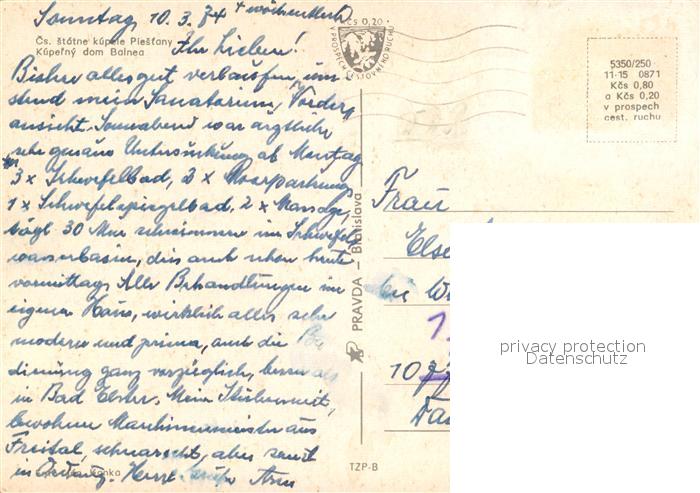 Sonntag 10.3.74 + wöchentlich
Čs. štátne kúpele Piešťany
Kúpeľný dom Balnea
Ihr Lieben!
Bisher alles gut verlaufen, um
stend mein Sanatorium, Vorder
ansicht. Sonnabend war ärztliche
sehr genaue Untersuchung, ab Montag
3 x Schwefelbad, 2 x
1 x Schwefelspiegelbad, 2 x Massage,
tägl 30 Min schwimmen im Schwefel
wasserbasin, dies auch schon heute
vormittag. Alle Behandlungen im
eigenen Haus, wirklich alles sehr
modern und prima, auch die Be
dienung ganz vorzüglich, besser als
in Bad Elster. Mein
bewohner Maschinenmeister aus
Freital, schnarcht, aber sonst
in Ordnung. Herzl.
KČS 0,20
V PROSPECH CESTOVNÉHO RUCHU
5350/250
11-15 0871
Kčs 0,80
a Kčs 0,20
v prospech
cest. ruchu
PRAVDA – Bratislava
TZP-B
Frau
Else
privacy protection
Datenschutz